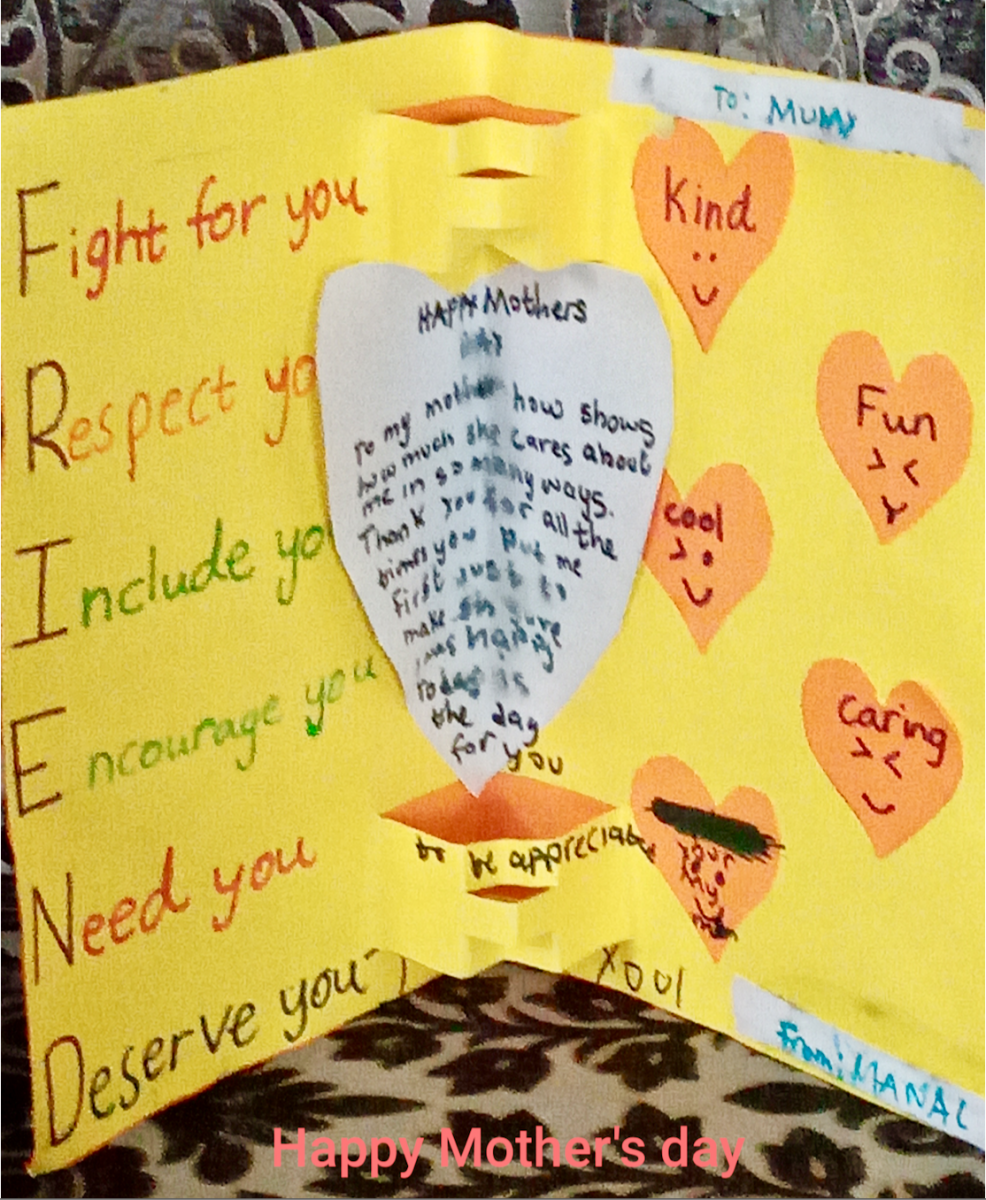 To: MUMY
Fight for you
Respect yo
Include yo
Encourage you
Need you
Deserve you
HAPPY Mothers
DAY
To my mother how shows
how much she cares about
me in so many ways.
Thank you for all the
times you put me
first just to
make sure
I was happy
Today is
the day
for you
to be appreciate
Kind
Fun
cool
caring
your
my
xool
From: MANAL
Happy Mother's day